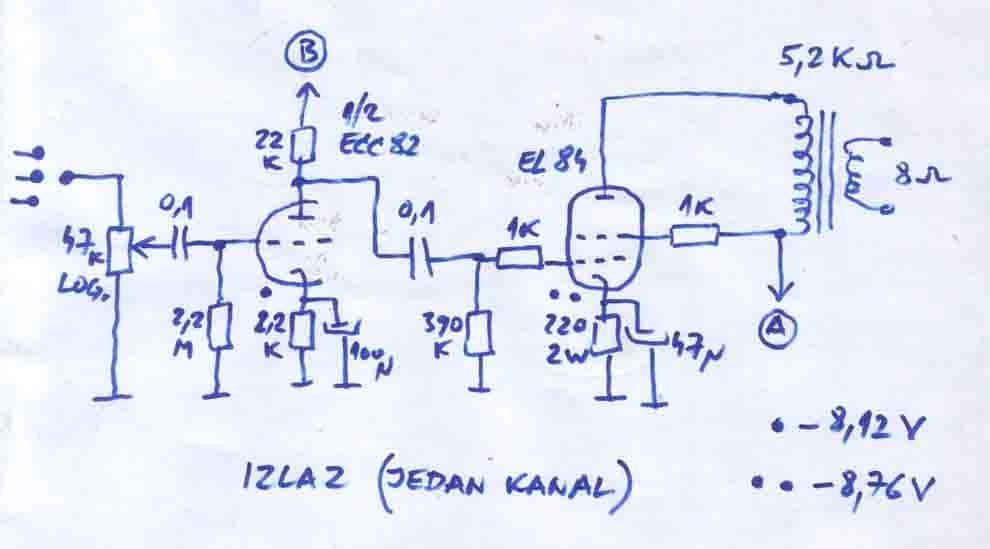 B
5,2 K Ω
1/2
ECC 82
22
K
EL 84
8 Ω
0,1
0,1
1K
1K
47
K
LOG.
2,2
M
2,2
K
100
N
390
K
220
2W
47N
A
• – 8,12 V
• • – 8,76 V
IZLAZ (JEDAN KANAL)